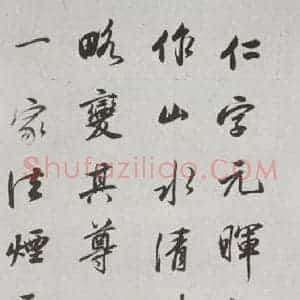 仁字元暉
作山水清
略變其尊
一家法煙
Shufaziliao.COM